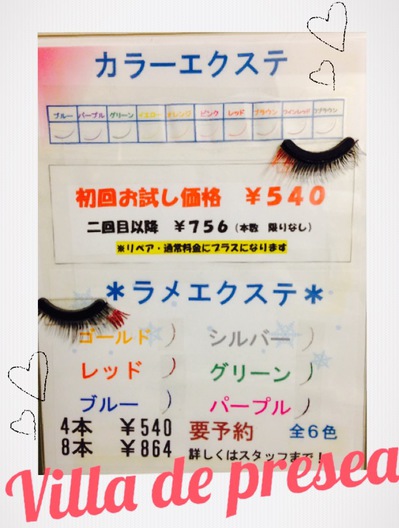 カラーエクステ
ブルー パープル グリーン イエロー オレンジ ピンク レッド ブラウン ワインレッド
初回お試し価格 ￥５４０
二回目以降 ￥７５６（本数 限りなし）
※リペア・通常料金にプラスになります
＊ラメエクステ＊
ゴールド シルバー
レッド グリーン
ブルー パープル
4本 ￥540 要予約 全６色
8本 ￥864 詳しくはスタッフまで！
Villa de presea